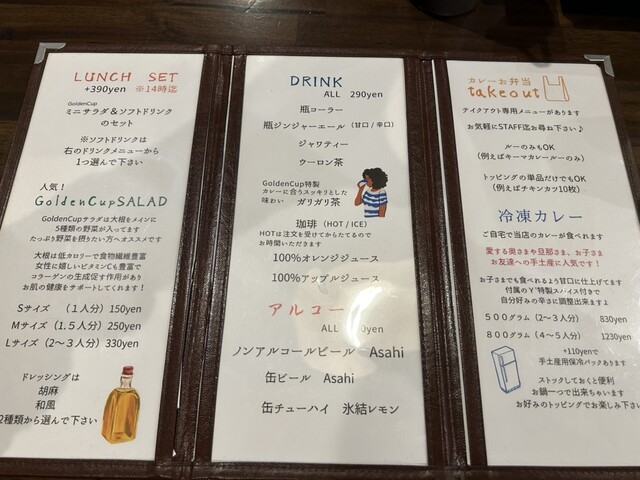 LUNCH SET
+390yen ※14時迄
GoldenCup
ミニサラダ＆ソフトドリンク
のセット
※ソフトドリンクは
右のドリンクメニューから
1つ選んで下さい
人気！
GoldenCupSALAD
GoldenCupサラダは大根をメインに
5種類の野菜が入ってます
たっぷり野菜を摂りたい方へオススメです
大根は低カロリーで食物繊維豊富
女性に嬉しいビタミンCも豊富で
コラーゲンの生成促す作用があり
お肌の健康をサポートしてくれます！
Sサイズ （1人分）150yen
Mサイズ（1.5人分）250yen
Lサイズ（2〜3人分）330yen
ドレッシングは
胡麻
和風
2種類から選んで下さい
DRINK
ALL 290yen
瓶コーラー
瓶ジンジャーエール（甘口/辛口）
ジャワティー
ウーロン茶
GoldenCup特製
カレーに合うスッキリとした
味わい ガリガリ茶
珈琲（HOT / ICE）
HOTは注文を受けてからたてるので
お時間いただきます
100％オレンジジュース
100％アップルジュース
アルコー
ALL yen
ノンアルコールビール Asahi
缶ビール Asahi
缶チューハイ 氷結レモン
カレーお弁当
takeout
テイクアウト専用メニューがあります
お気軽にSTAFF迄お尋ね下さい♪
ルーのみもOK
（例えばキーマカレールーのみ）
トッピングの単品だけでもOK
（例えばチキンカツ10枚）
冷凍カレー
ご自宅で当店のカレーが食べれます
愛する奥さまや旦那さま、お子さま
お友達への手土産に人気です！
お子さまでも食べれるよう甘口に仕上げてます
付属の"Y"特製スパイス付きで
自分好みの辛さに調整出来ますよ
500グラム（2〜3人分） 830yen
800グラム（4〜5人分） 1230yen
+110yenで
手土産用保冷パックあります
ストックしておくと便利
お鍋一つで出来ちゃいます
お好みのトッピングでお楽しみ下さい